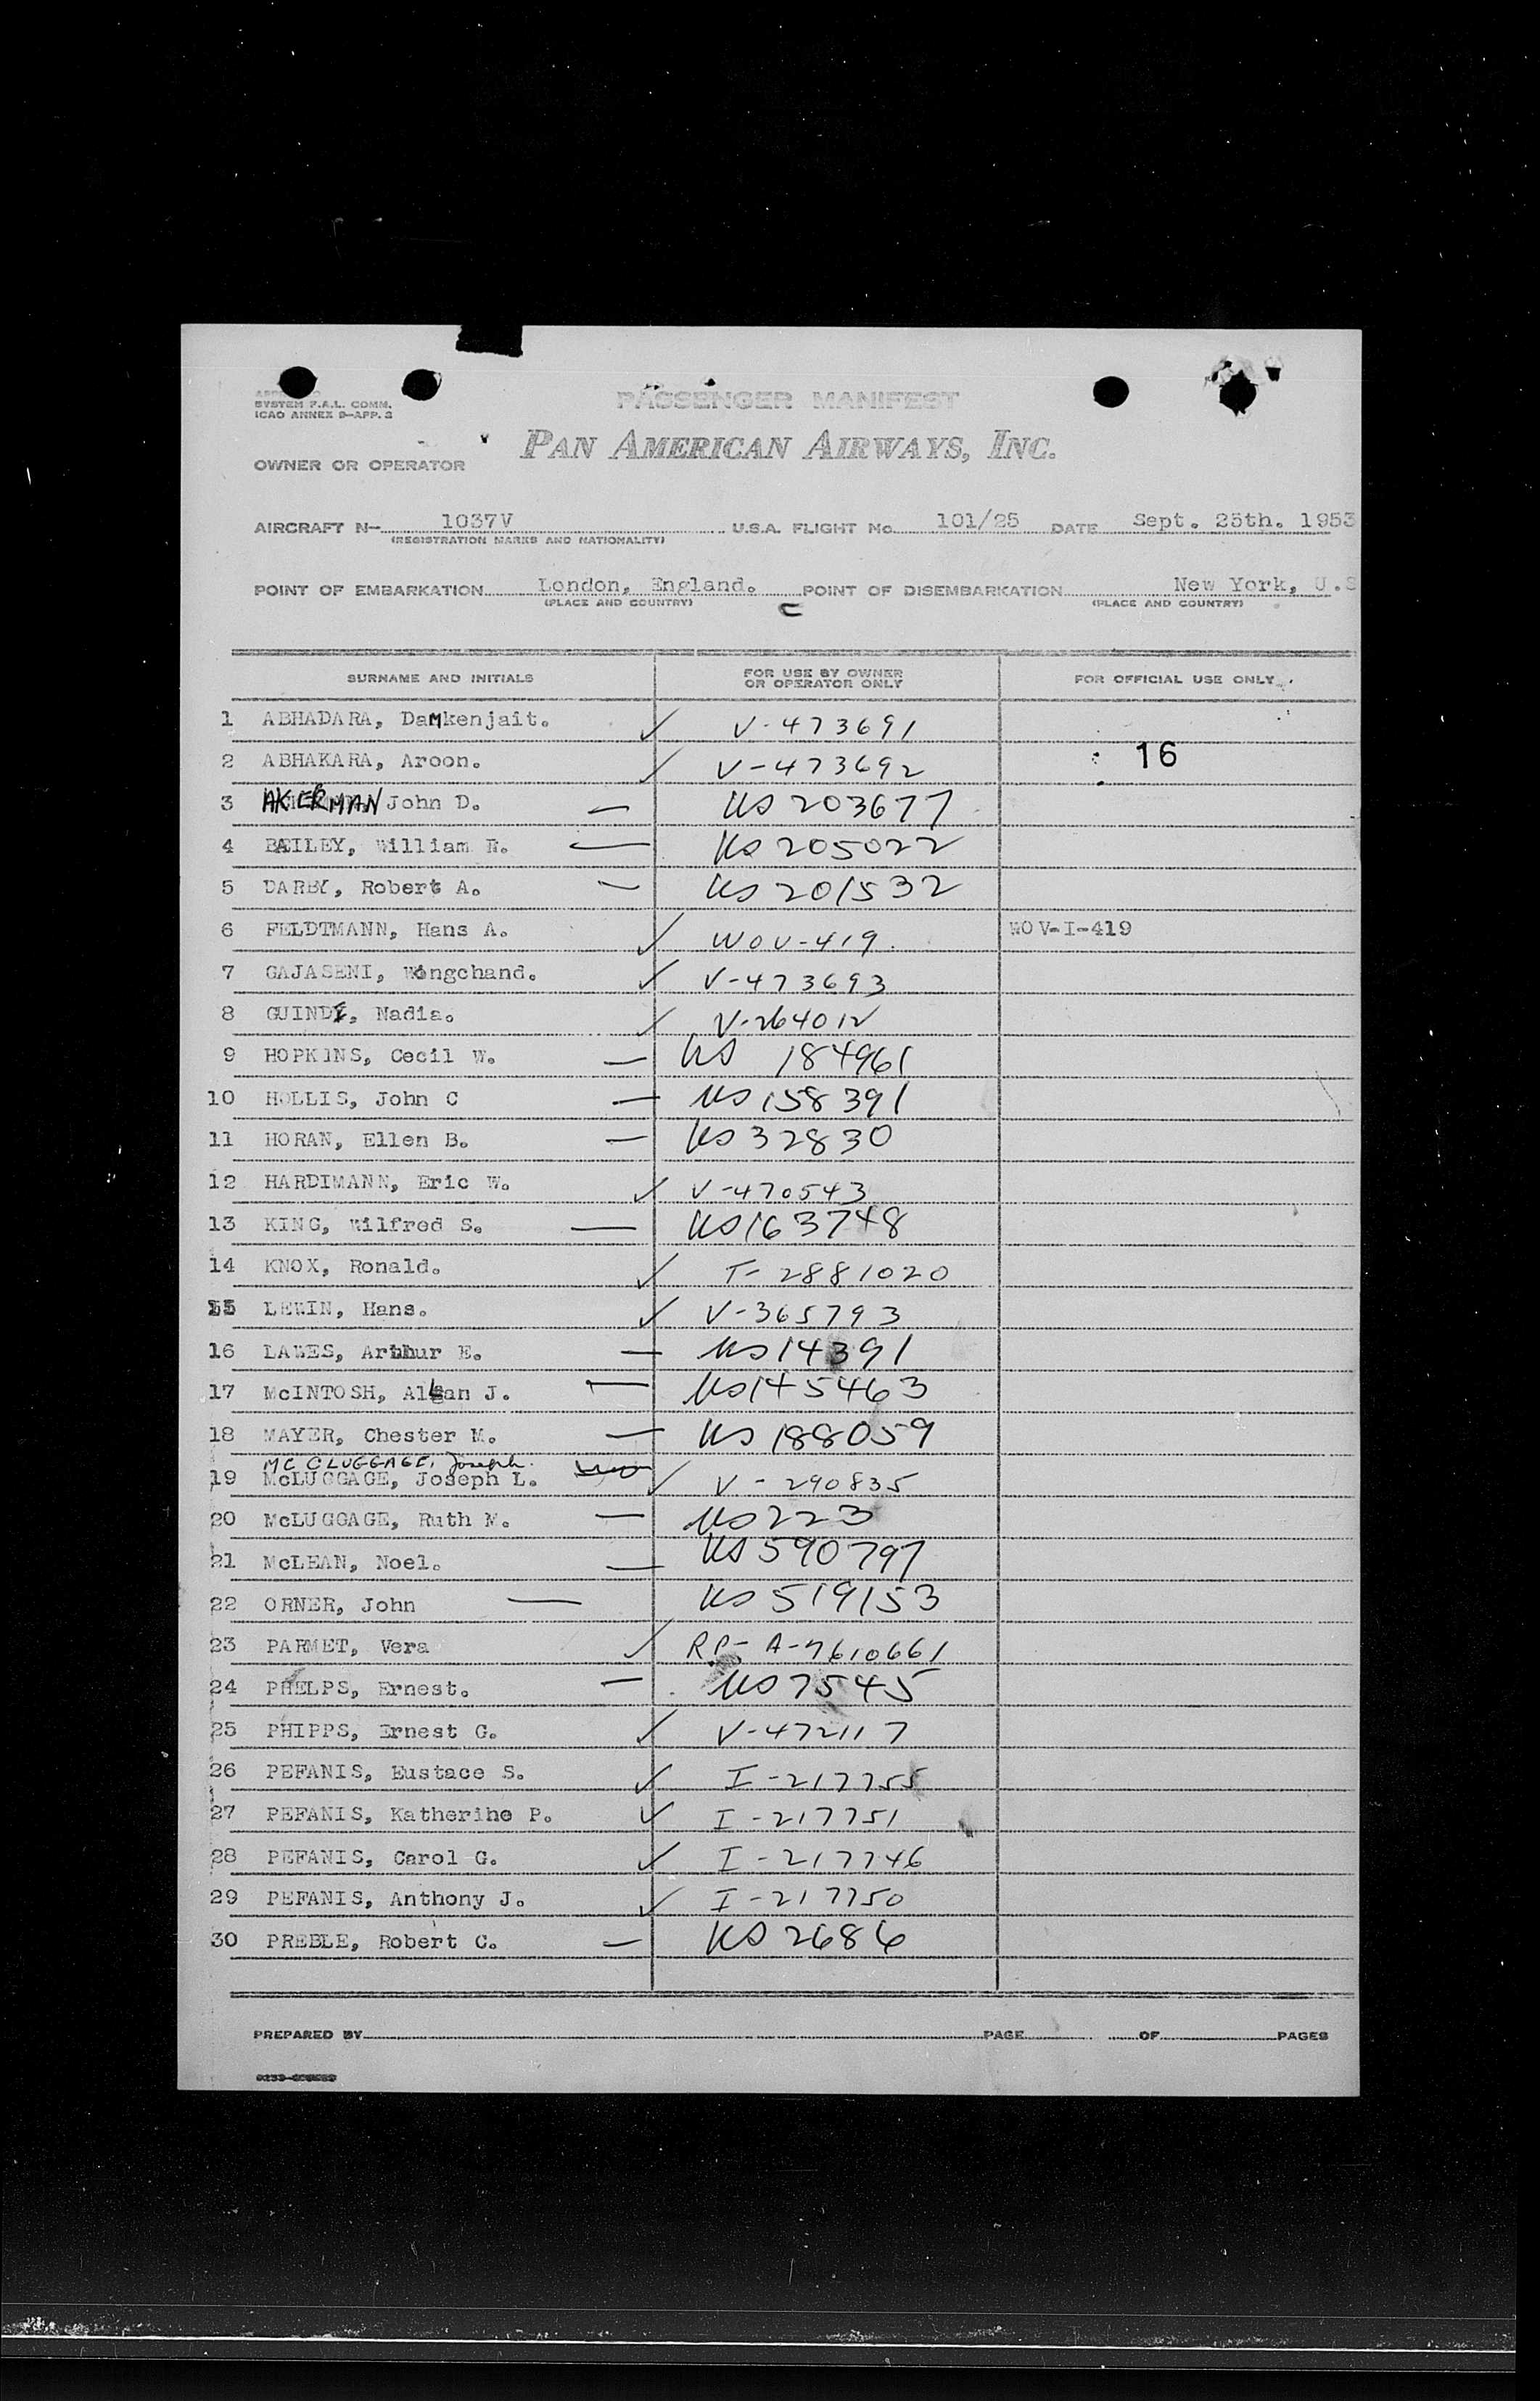 SYSTEM F.A.L. COMM.
ICAO ANNEX 9-APP. 3
PASSENGER MANIFEST
PAN AMERICAN AIRWAYS, INC.
OWNER OR OPERATOR
AIRCRAFT N- 1037V U.S.A. FLIGHT No. 101/25 DATE Sept. 25th. 1953
(REGISTRATION MARKS AND NATIONALITY)
POINT OF EMBARKATION London, England. POINT OF DISEMBARKATION New York, U.S
(PLACE AND COUNTRY) (PLACE AND COUNTRY)
C
SURNAME AND INITIALS FOR USE BY OWNER OR OPERATOR ONLY FOR OFFICIAL USE ONLY
1 ABHADARA, Damkenjait. ✓ V-473691
2 ABHAKARA, Aroon. ✓ V-473692 16
3 AKERMAN, John D. — US 203677
4 BAILEY, William R. — US 205022
5 DARBY, Robert A. — US 201532
6 FELDTMANN, Hans A. ✓ WOV-419. WOV-I-419
7 GAJASENI, Wongchand. ✓ V-473693
8 GUINDI, Nadia. ✓ V-264012
9 HOPKINS, Cecil W. — US 184961
10 HOLLIS, John C — US 158391
11 HORAN, Ellen B. — US 32830
12 HARDIMANN, Eric W. ✓ V-470543
13 KING, Wilfred S. — US 163748
14 KNOX, Ronald. ✓ T-2881020
15 LEWIN, Hans. ✓ V-365793
16 LAWES, Arthur E. — US 14391
17 McINTOSH, Allan J. — US 145463
18 MAYER, Chester M. — US 188059
MC CLUGGAGE, Joseph.
19 McLUGGAGE, Joseph L. ✓ V-290835
20 McLUGGAGE, Ruth M. — US 223
21 McLEAN, Noel. — US 590797
22 ORNER, John — US 519153
23 PARMET, Vera ✓ R.P- A-7610661
24 PHELPS, Ernest. — US 7545
25 PHIPPS, Ernest G. ✓ V-472117
26 PEFANIS, Eustace S. ✓ I-217755
27 PEFANIS, Katherine P. ✓ I-217751
28 PEFANIS, Carol G. ✓ I-217746
29 PEFANIS, Anthony J. ✓ I-217750
30 PREBLE, Robert C. — US 2686
PREPARED BY PAGE OF PAGES